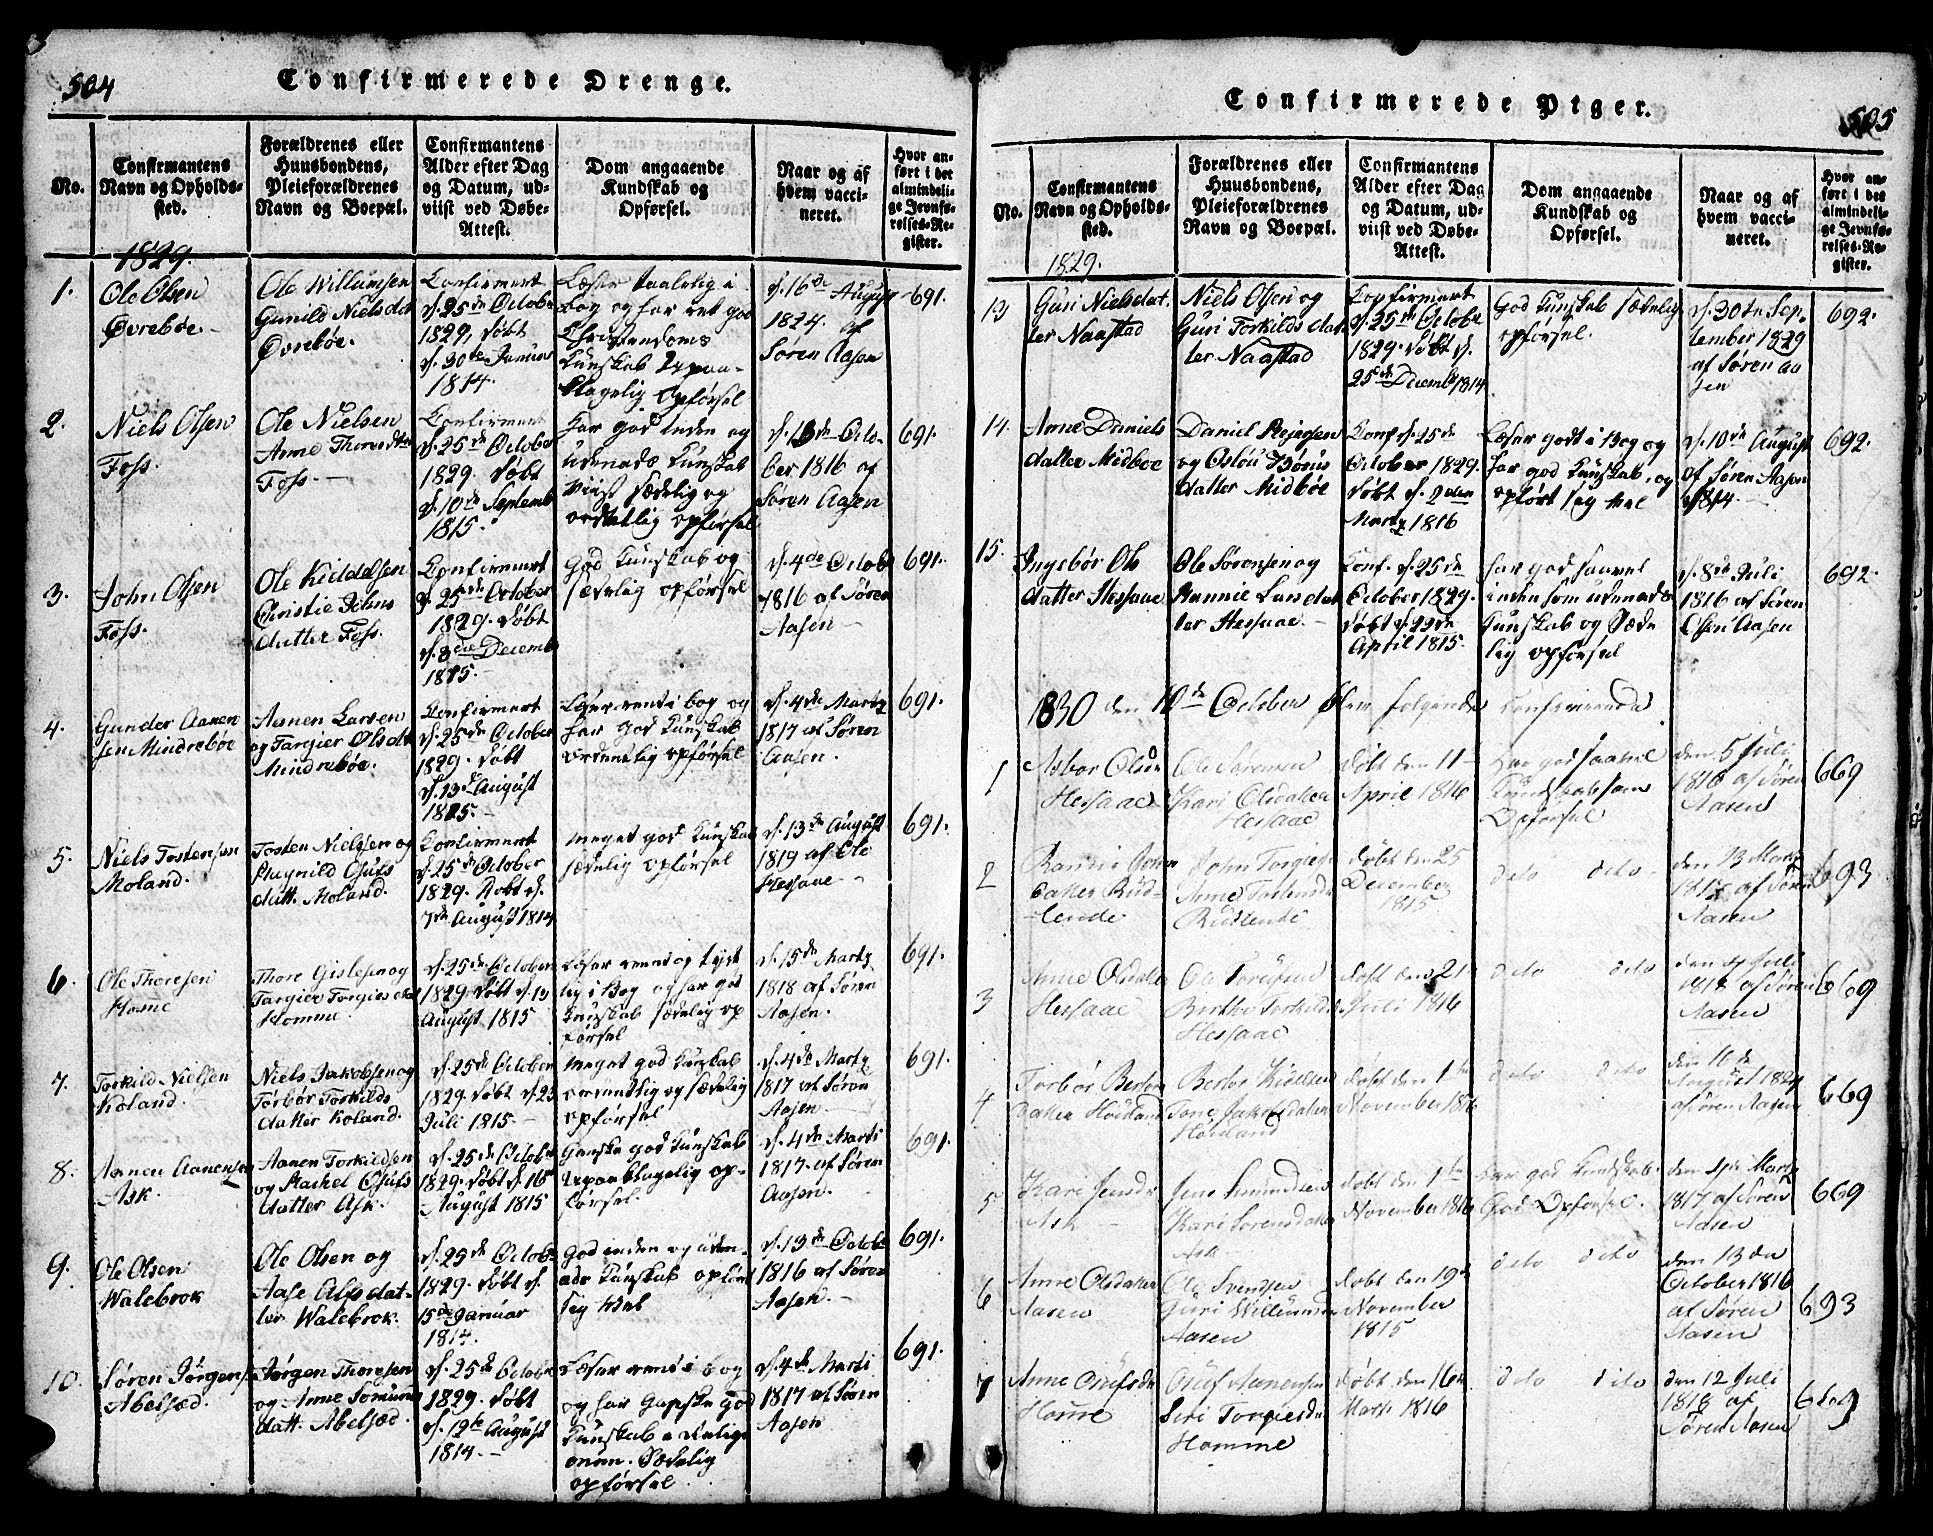 504
Confirmerede Drenge.
No.
Confirmantens
Navn og Opholds-
sted.
Forældrenes eller
Huusbondens,
Pleieforældrenes
Navn og Boepæl.
Confirmantens
Alder efter Dag
og Datum, ud-
viist ved Døbe-
Attest.
Dom angaaende
Kundskab og
Opførsel.
Naar og af
hvem vacci-
neret.
Hvor an-
ført i det
almindeli-
ge Jevnfø-
relses-Re-
gister.
1829.
1.
Ole Olsen
Øvrebøe.
Ole Willumsen
Gunild Nielsdat
Øvrebøe.
Confirmert
d. 25de Octobe
1829, døbt
d. 30te Januar
1814.
Læser taalelig i
Bog og har ret god
Christendoms
Kunskab Upaa-
klagelig Opførsel
d. 16de August
1824. af
Søren Aasen
691.
2.
Niels Olsen
Foss.
Ole Nielsen
Anne Thoresdtr
Foss.
Confirmert
d. 25de October
1829. døbt
d. 10de Septemb
1815.
har god inden og
udenads Kunskab
Viist sædelig og
ordentlig opførsel
d. 13de Octo-
ber 1816 af
Søren Aasen
691.
3.
John Olsen
Foss.
Ole Kieldelsen
Christie Johns
datter Foss.
Confirmert
d. 25de October
1829. døbt
d. 8de Decemb
1815.
God Kunskab og
sædelig opførsel
d. 4de Octob
1816 af Søren
Aasen
691.
4.
Gunder Aanen
sen Mindrebøe
Aanen Larsen
og Targier Olsdat
Mindrebøe.
Confirmert
d. 25de October
1829. døbt
d. 13de August
1815.
Læser rent i bog og
har god Kunskab
ordentlig opførsel
d. 4de Martz
1817 af Søren
Aasen.
691.
5.
Niels Tostensen
Moland.
Tosten Nielssen og
Ragnild Osufs
datt. Moland.
Confirmert
d. 25de October
1829. døbt d.
7de August 1814
meget god Kunskab
sædelig opførsel
d. 13de August
1819 af Ole
Hessaae
691.
6.
Ole Thoresen
Home
Thore Gislesen og
Targier Torgiesdat
Homme.
d. 25de October
1829. døbt d. 13
August 1815
Læser rent og tyde
lig i Bog og har god
Kunskab sædelig op
førsel
d. 15de Martz
1818 af Søren
Aasen.
691.
7.
Torkild Nielsen
Koland
Niels Jakobsen og
Torbør Torkilds
datter Koland.
d. 25de October
1829 døbt d. 23
Juli 1815.
meget god Kunskab
ordentlig og sædelig
opførsel
d. 4de Martz
1817 af Søren
Aasen
691.
8.
Aanen Aanensen
Ask
Aanen Torkildsen
og Rachel Osufs
datter Ask.
d. 25de Octobe
1829. døbt d. 16de
August 1815
Ganske god Kunskab
Upaaklagelig op-
førsel
d. 4de Marti
1817. af Søren
Aasen.
691.
9.
Ole Olsen
Walebrok
Ole Olsen og
Aase Alfsdat-
ter Walebrok.
d. 25de Octob
1829. døbt d.
15de Januar
1814.
God inden og uden-
ads Kunskab opført
sig Wel
d. 13de Octob
1816 af Søren
Aasen.
691.
10.
Søren Jørgens
Abelsæd.
Jørgen Thoresen
og Anne Somunds
datt. Abelsæd.
d. 25de Octobe
1829. døbt
d. 12te August
1814.
Læser rent i bog
og har Ganske God
Kunskab
Sædelig
opførsel
d. 4de Marti
1817 af Søren
Aasen
691.
505
Confirmerede Piger.
No.
Confirmantens
Navn og Opholds-
sted.
Forældrenes eller
Huusbondens,
Pleieforældrenes
Navn og Boepæl.
Confirmantens
Alder efter Dag
og Datum, ud-
viist ved Døbe-
Attest.
Dom angaaende
Kundskab og
Opførsel.
Naar og af
hvem vacci-
neret.
Hvor an-
ført i det
almindeli-
ge Jevnfø-
relses-Re-
gister.
1829.
13
Guri Nielsdat
ter Naastad
Niels Olsen og
Guri Torkildsdat
ter Naastad
Confirmert
d. 25de Octobe
1829. døbt d.
25de Decemb 1814
God Kunskab sædelig
opførsel.
d. 30te Sep-
tember 1829
af Søren Aa
sen
692.
14.
Anne Daniels
datter Midboe
Daniel Reiersen
og Osløu Bønis
datter Midbøe
Conf. d. 25de
October 1829.
døbt d. 2den
Martz 1816
Læser godt i Bog og
har god Kunskab, og
opført sig Vel
d. 10de August
af Søren Aasen
1814
692.
15.
Ingebør Ols
datter Hessaae
Ole Sørensen og
Rannie Larsdat
ter Hessaae.
Conf. d. 25de
October 1829.
døbt d. 23de
April 1815.
har god saavel
inden som udenads
Kunskab og Sæde
lig opførsel
d. 8de Juli
1816 af Søren
Olsen Aasen
692.
1830 den 10de October blev følgende Confirmerede
1
Asbor Olsdr
Hessaae
Ole Sørensen
Kari Olsdatter
Hessaae
Døbt den 11
April 1816
Har god saavel
Kundskab som
Opførsel
den 5 Juli
1816 af Søren
Aasen
669
2
Ranni John
datter Rud-
lende
John Torgiesen
Anne
Rudlende
Døbt den 25
December
1815
dito dito
den 13 Marts
af Søren
Aasen
693
3
Anne Olsdatter
Hessaae
Berthe Torkildsd
Hessaae
døbt den 21
Juli 1816
dito dito
Juli
1818 af Søren
Aasen
669
4
Torbør Bentsen
datter Høiland
Tone Jakobsdatter
Høiland
døbt den 1te
November 1816
dito dito
den 10de
August
af Søren Aasen
669
5
Kari Jensdr
Ask
Jens
Kari Sørensdatter
Ask
døbt den 1te
November 1816
Har god Kundskab.
God Opførsel.
den 4de Martz
1817 af Søren
Aasen
669
6
Anne Olsdatter
Aasen
Ole Svendsen
Guri Willumsdr
Aasen
døbt den 19de
November
1815
dito dito
den 13de
October 1816
af Søren
Aasen
693
7
Anne Osufsdr
Home
Osuf Aanensen
Siri Torgiesdr
Homme
Døbt den 16de
Marts 1816
dito dito
den 12 Juli
1818 af
Søren Aasen
669